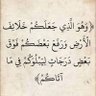 ﴿وَهُوَ الَّذِي جَعَلَكُمْ خَلَائِفَ
الْأَرْضِ وَرَفَعَ بَعْضَكُمْ فَوْقَ
بَعْضٍ دَرَجَاتٍ لِيَبْلُوَكُمْ فِي مَا
آتَاكُمْ﴾